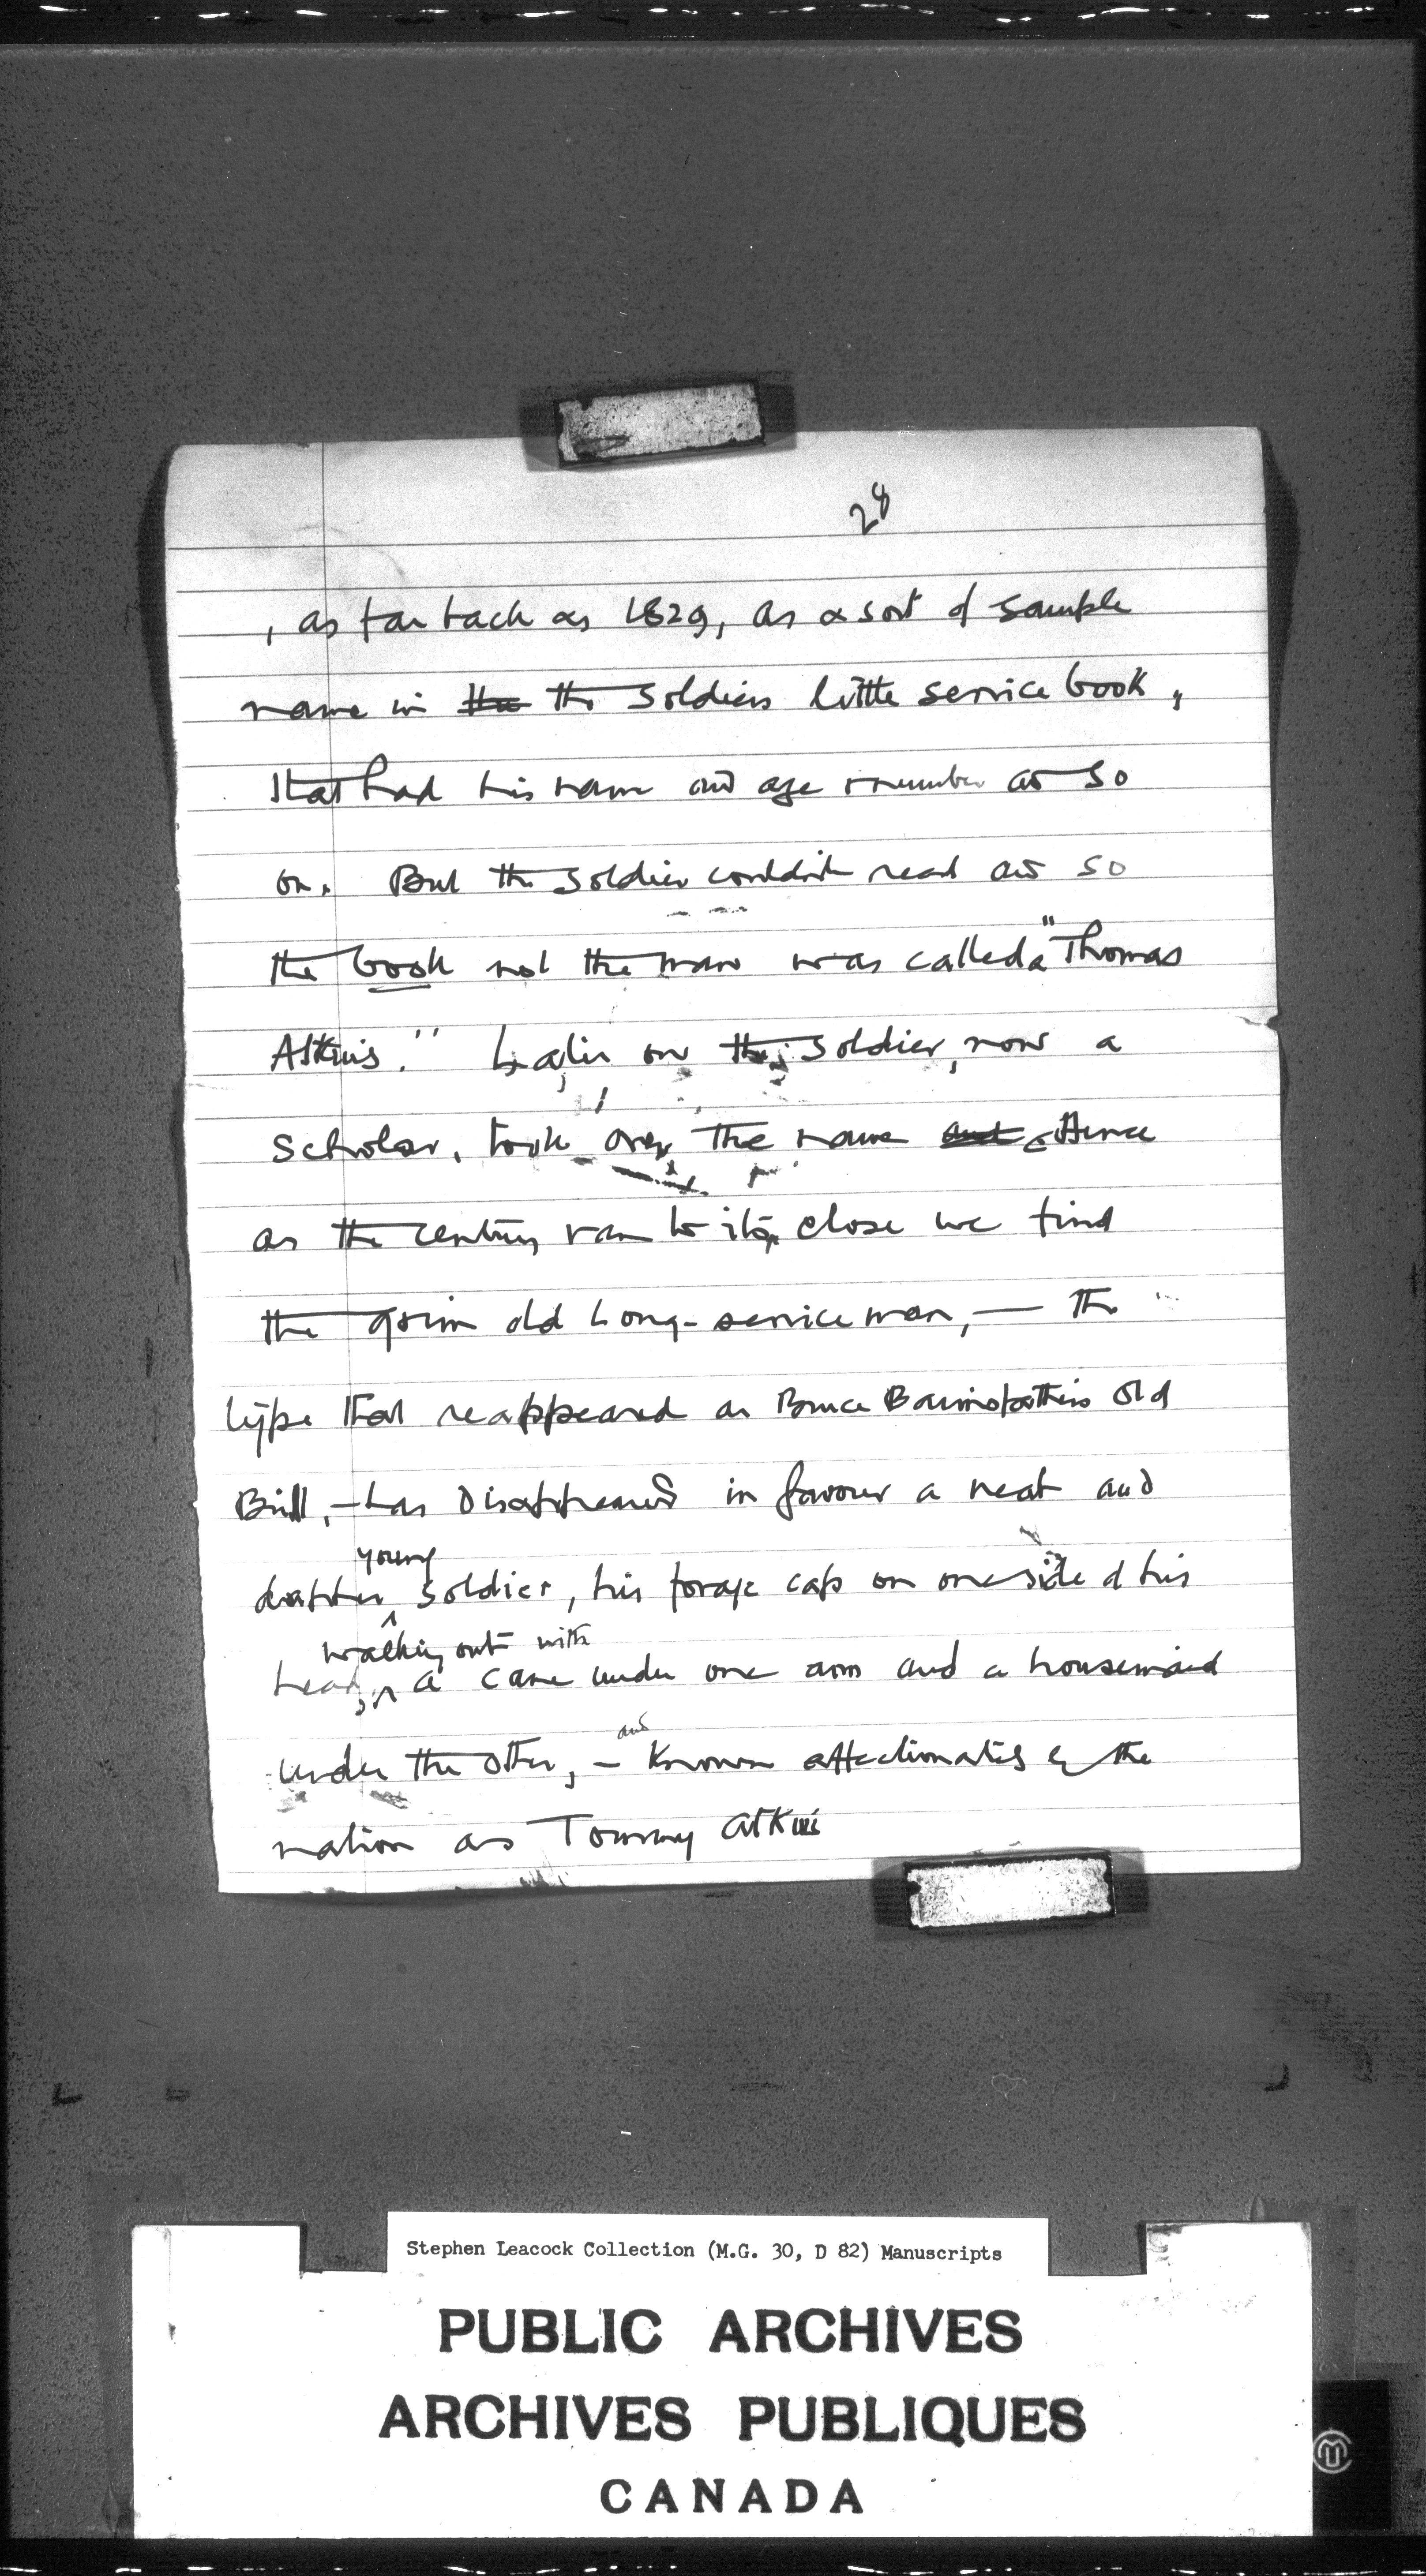 28
, as far back as 1829, as a sort of sample
name in the the soldiers little service book,
that had his name and age & number and so
on. But the soldier couldnt read and so
the book not the man was called a "Thomas
Atkins." Later on the soldier, now a
scholar, took over the name and Hence
as the century ran to its close we find
the grim old long-service man, — the
type that reappeared as Bruce Bairnsfathers Old
Bill, — has disappeared in favour a neat and
young
dapper soldier, his forage cap on one side of his
walking out with
head, a cane under one arm and a housemaid
and
under the other, — known affectionately by the
nation as Tommy Atkins
Stephen Leacock Collection (M.G. 30, D 82) Manuscripts
PUBLIC ARCHIVES
ARCHIVES PUBLIQUES
CANADA